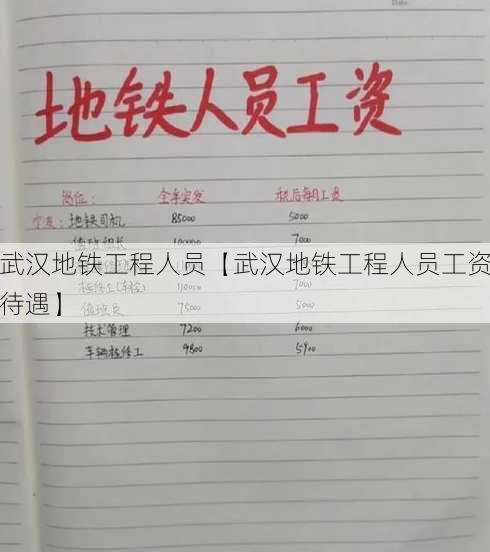 地铁人员工资
岗位: 全年实发 税后每月工资
地铁司机 85000 5000
值班组长 100000 7000
武汉地铁工程人员【武汉地铁工程人员工资
待遇】
检修工(车检) 110000 7000
值班员 75000 5000
技术管理 7200 6000
车辆检修工 9800 5900